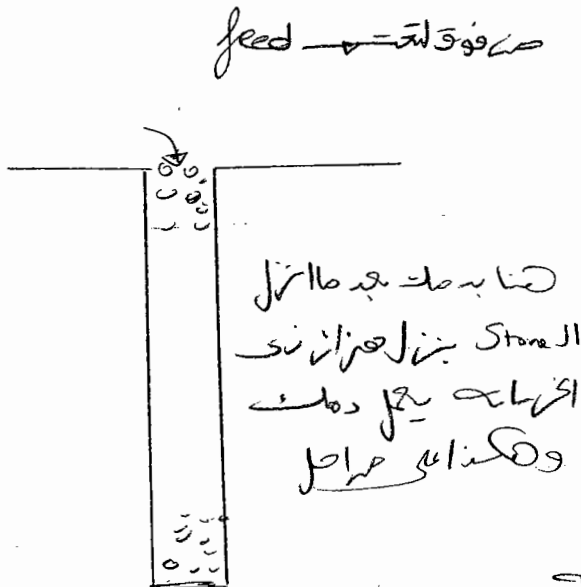 feed → من فوق لتحت
هنا به دمك بعد ما انزل
ال Stone بنزل هزاز زى
الخرسانه يعمل دمك
وهكذا على مراحل